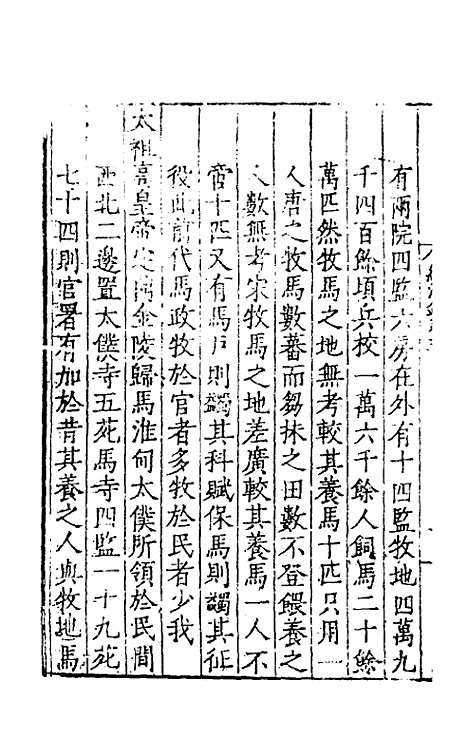 有兩院四監六房在外有十四監牧地四萬九
千四百餘頃兵校一萬六千餘人飼馬二十餘
萬匹然牧馬之地無考較其養馬十匹只用一
人唐之牧馬數蕃而芻抹之田數不登餵養之
人數無考宋牧馬之地差廣較其養馬一人不
啻十匹又有馬戶則蠲其科賦保馬則蠲其征
役此前代馬政牧於官者多牧於民者少我
太祖高皇帝定鼎金陵歸馬淮甸太僕所領於民間
西北二邊置太僕寺五苑馬寺四監一十九苑
七十四則官署有加於昔其養之人與牧地馬